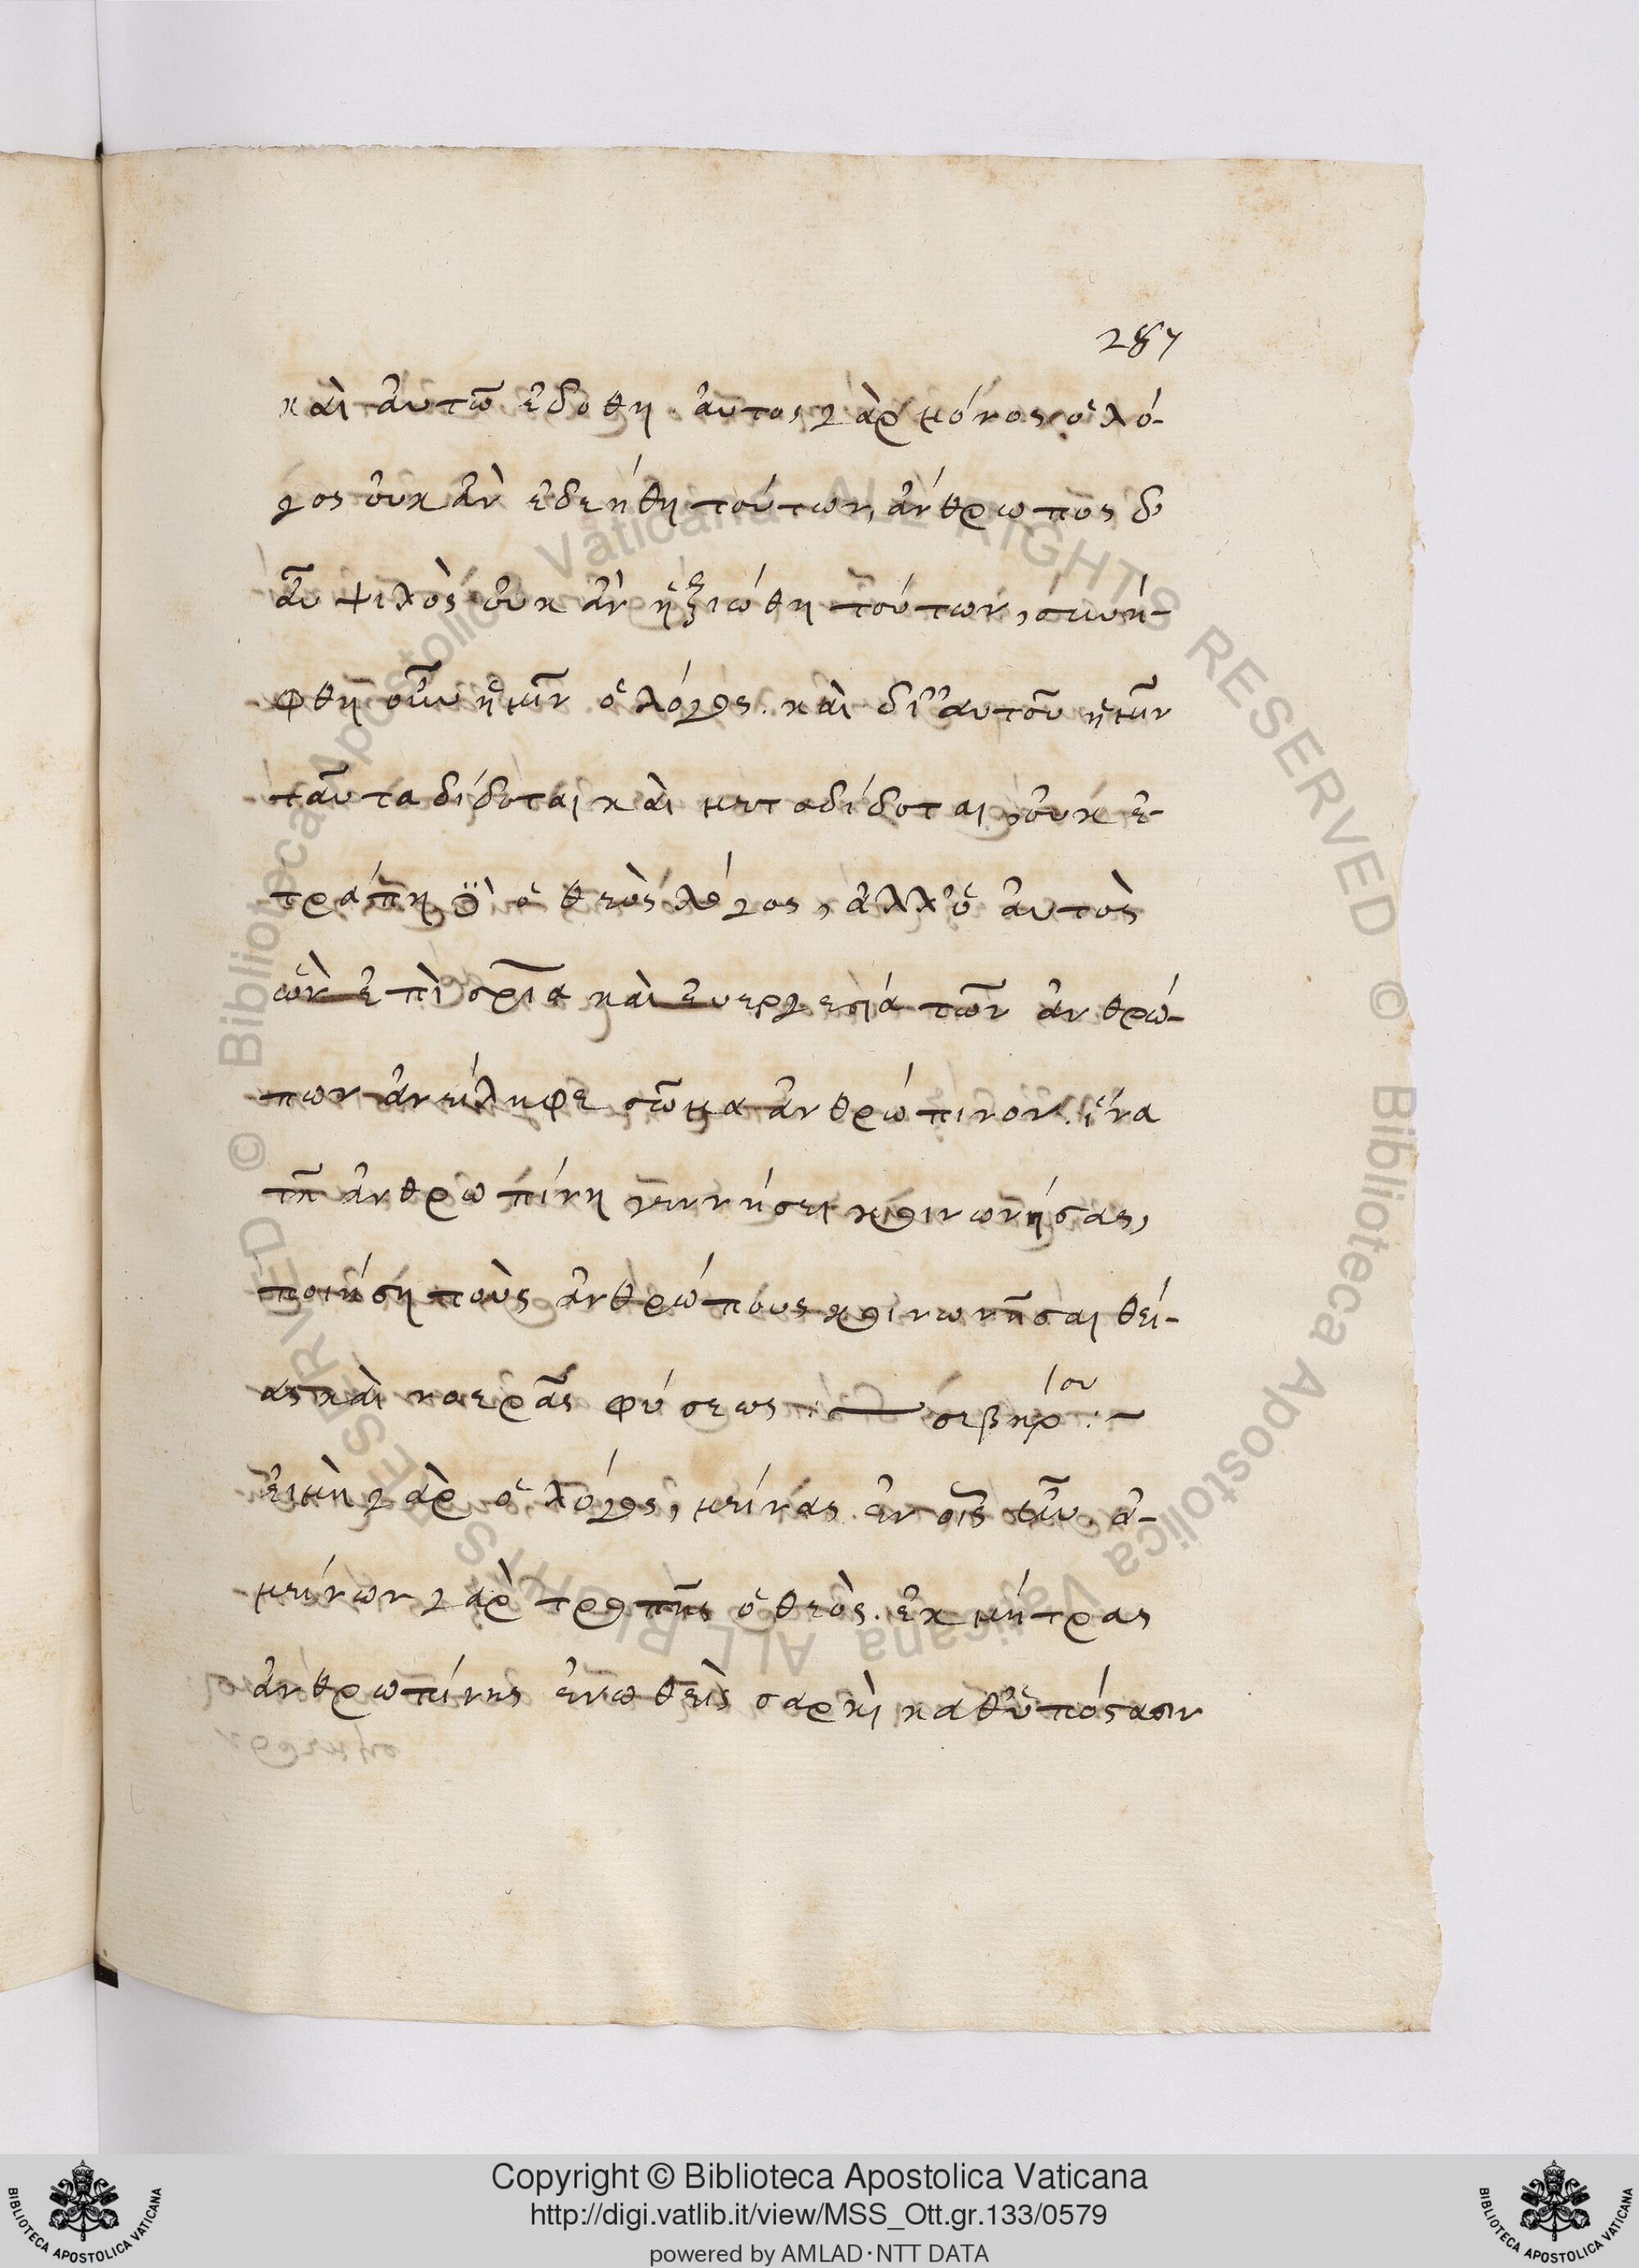 287
καὶ ἀυτῶ ἐδοθη. ἀυτος γὰρ μόνος ὁ λό-
γος ὀυκ ἀν ἐδεήθη τούτων, ἀνθρωπος δ'
ἀῦ ψιλὸς ὀυκ ἀν ἠξιώθη τούτων, συνή-
φθη οὖν ἡμῖν ὁ λόγος. καὶ δι' ἀυτοῦ ἡμῖν
ταῦτα δίδοται καὶ μεταδίδοται, ὀυκ ἐ-
τράπη ὁ θεὸς λόγος, ἀλλ' ὁ ἀυτὸς
ὢν ἐπὶ σρία καὶ ἐυεργεσία τῶν ἀνθρώ-
πων ἀνείληφε σῶμα ἀνθρώπινον. ἵνα
τῆ ἀνθρωπίνη γεννήσει κοινωνήσας,
ποιήση τοὺς ἀνθρώπους κοινωνῆσαι θεί-
ας καὶ νοερᾶς φύσεως .— σεβηρίου :—
ἐιμὴ γὰρ ὁ λόγος, μείνας ἐν οἷς ἦν. ἀ-
μείνων γὰρ τροπῆς ὁ θεὸς. ἐκ μήτρας
ἀνθρωπίνης ἑνωθεὶς σαρκὶ καθ' ὑπόστασιν
Copyright © Biblioteca Apostolica Vaticana
http://digi.vatlib.it/view/MSS_Ott.gr.133/0579
powered by AMLAD·NTT DATA
BIBLIOTECA APOSTOLICA VATICANA
BIBLIOTECA APOSTOLICA VATICANA
© Biblioteca Apostolica Vaticana ALL RIGHTS RESERVED © Biblioteca Apostolica Vaticana ALL RIGHTS RESERVED